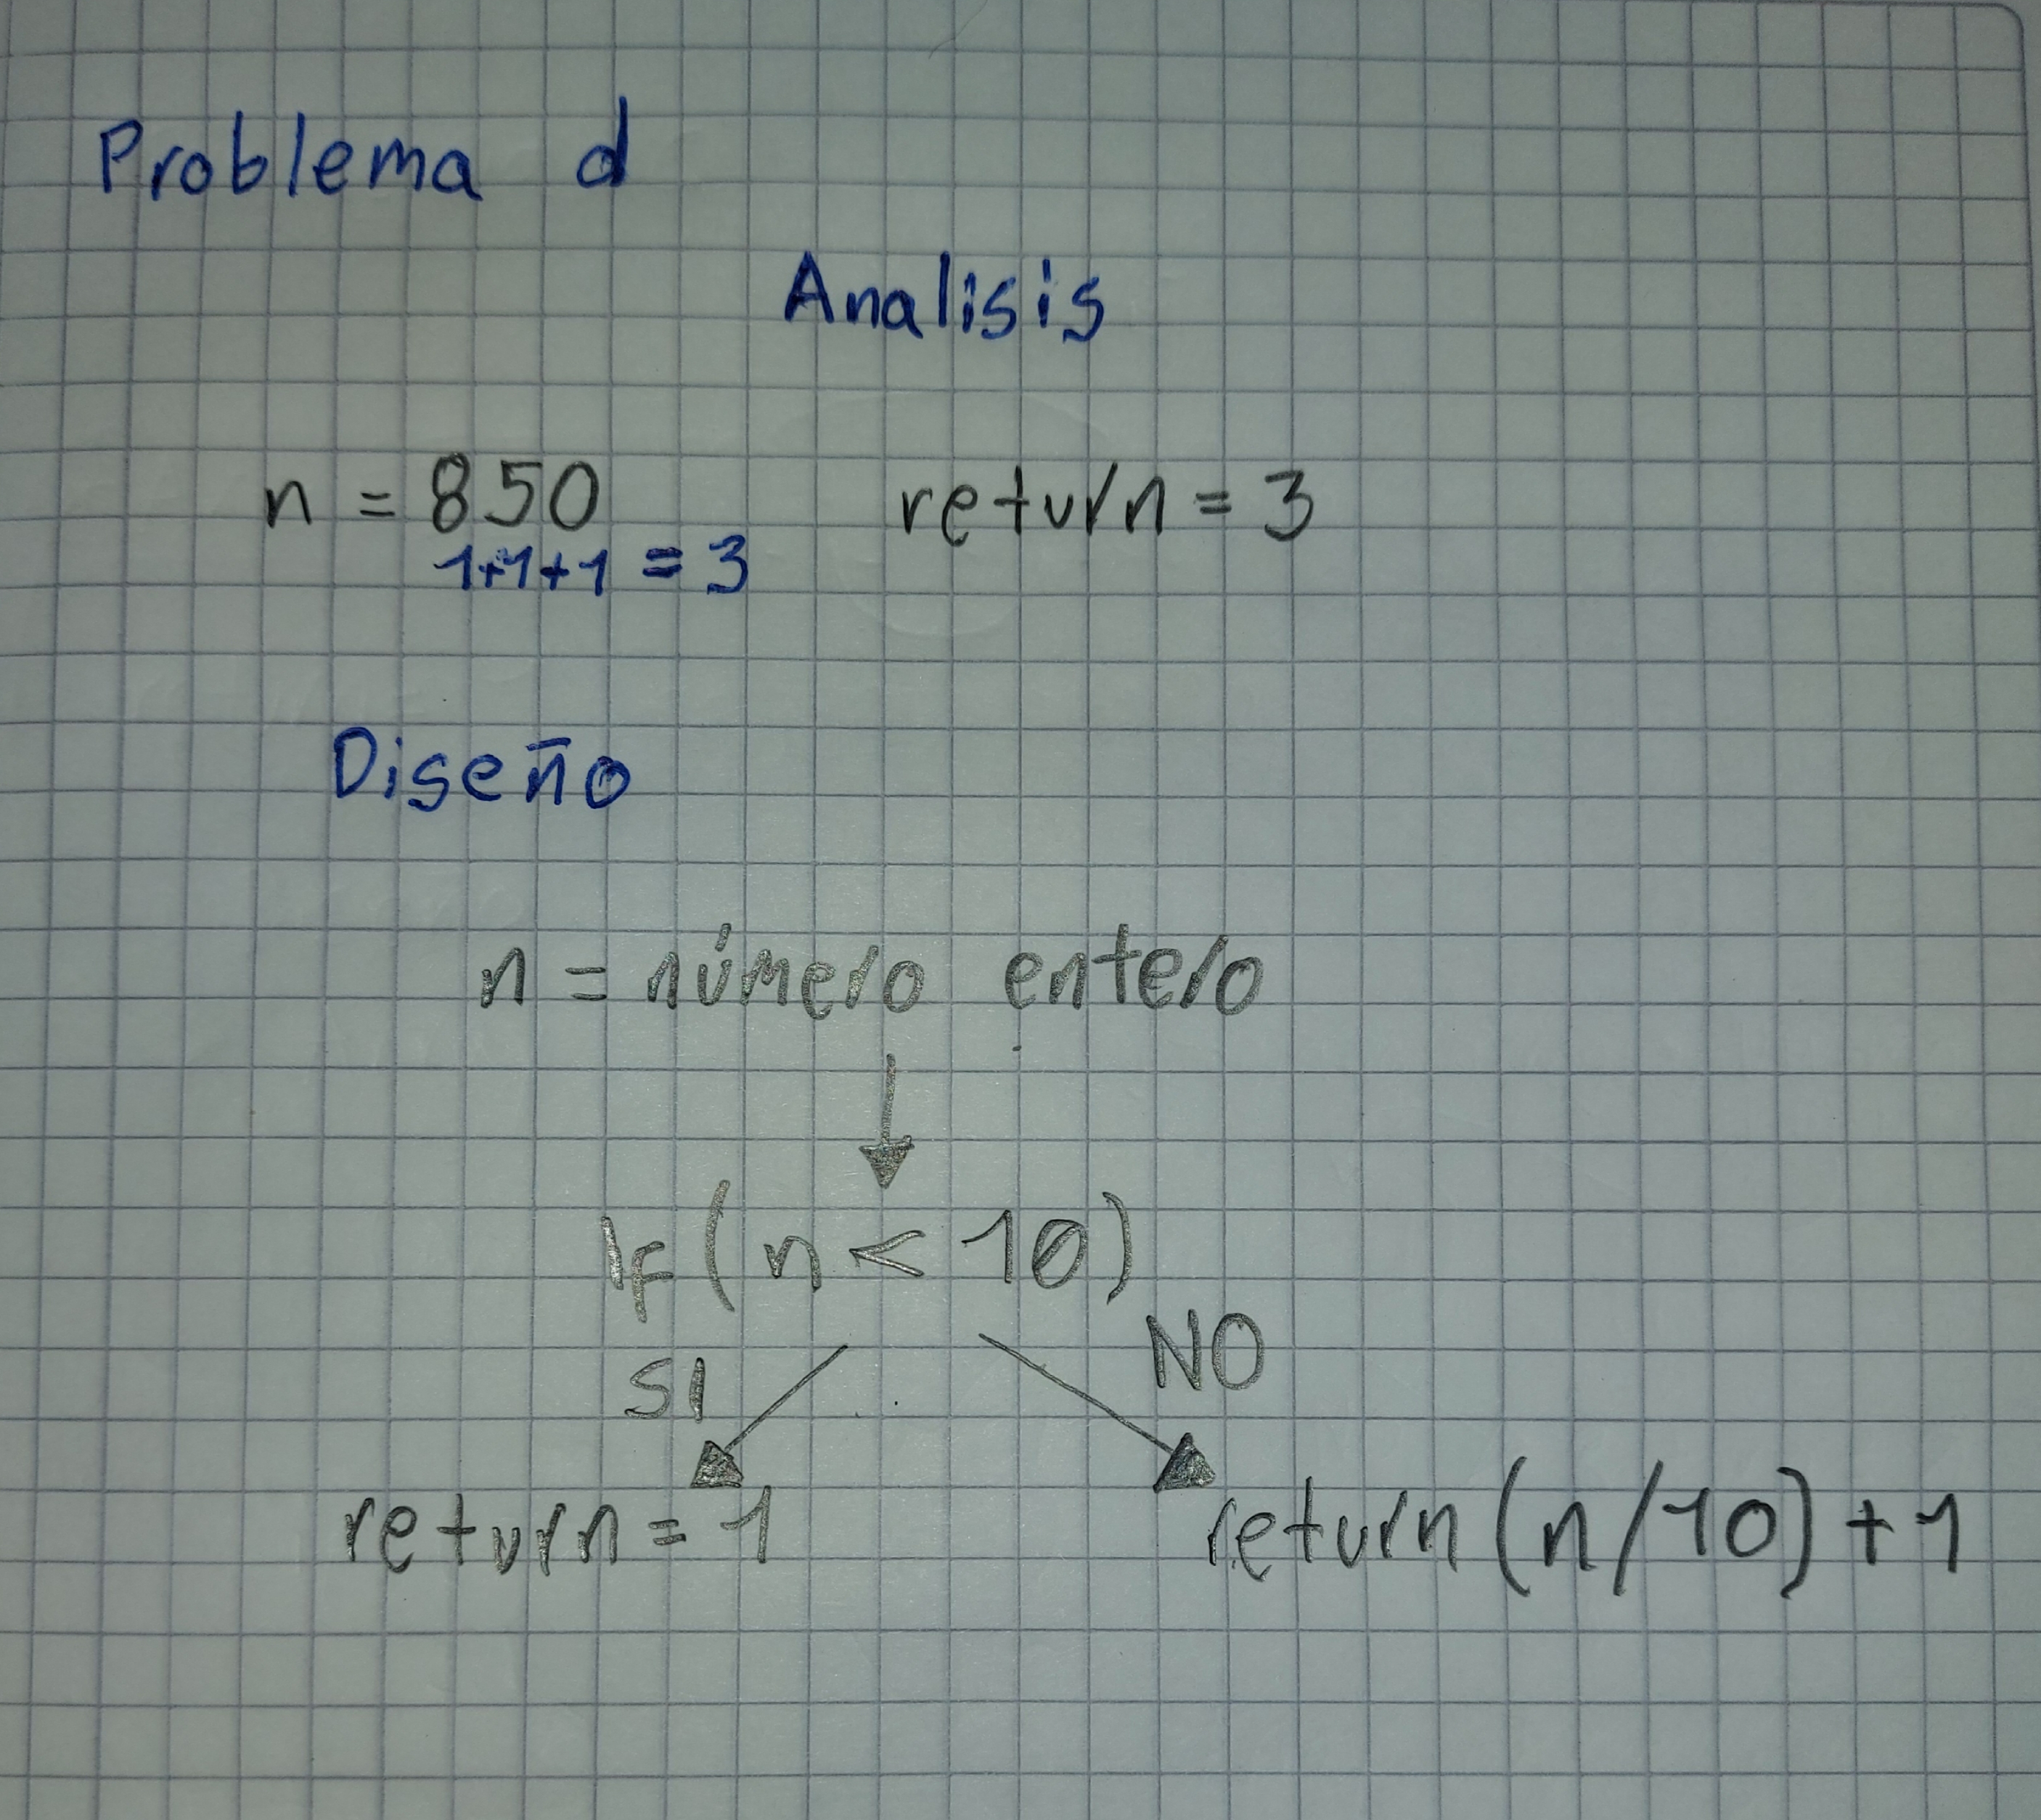 Problema d
Analisis
n = 850 return = 3
1+1+1 = 3
Diseño
n = número entero
IF (n < 10)
SI NO
return = 1 return (n/10) + 1